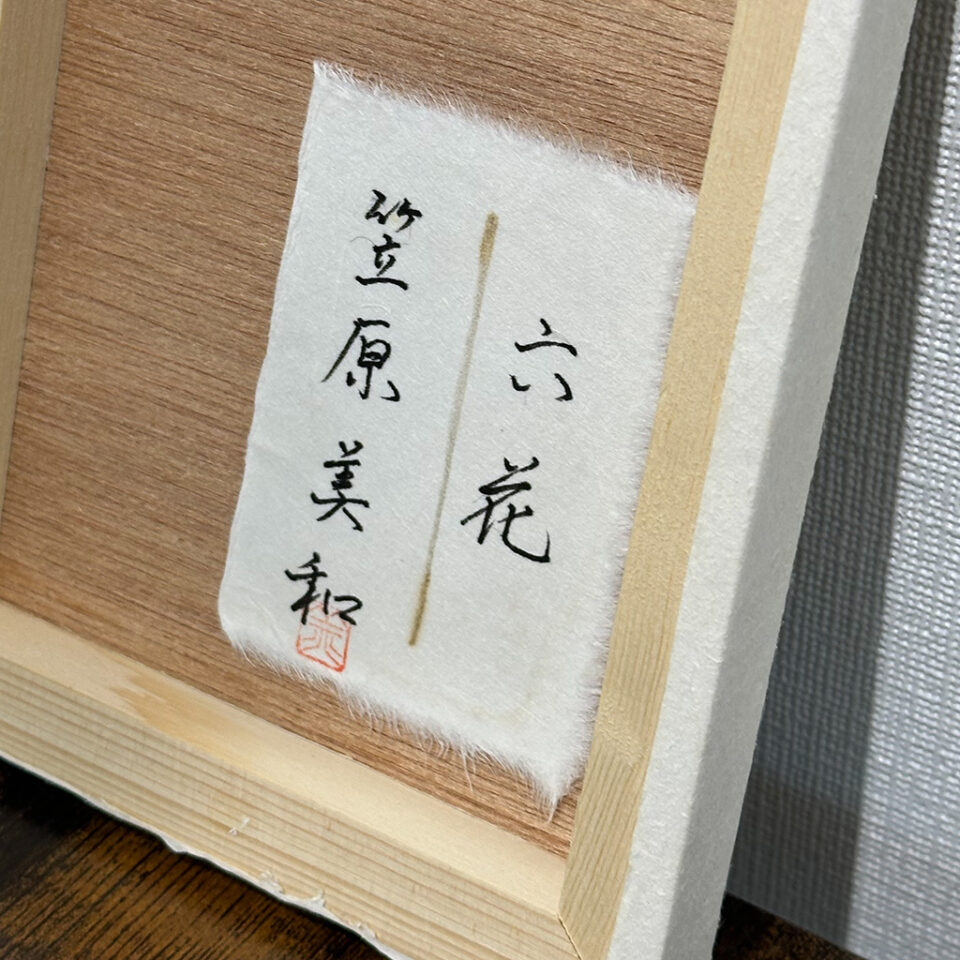 六花
笠原美和